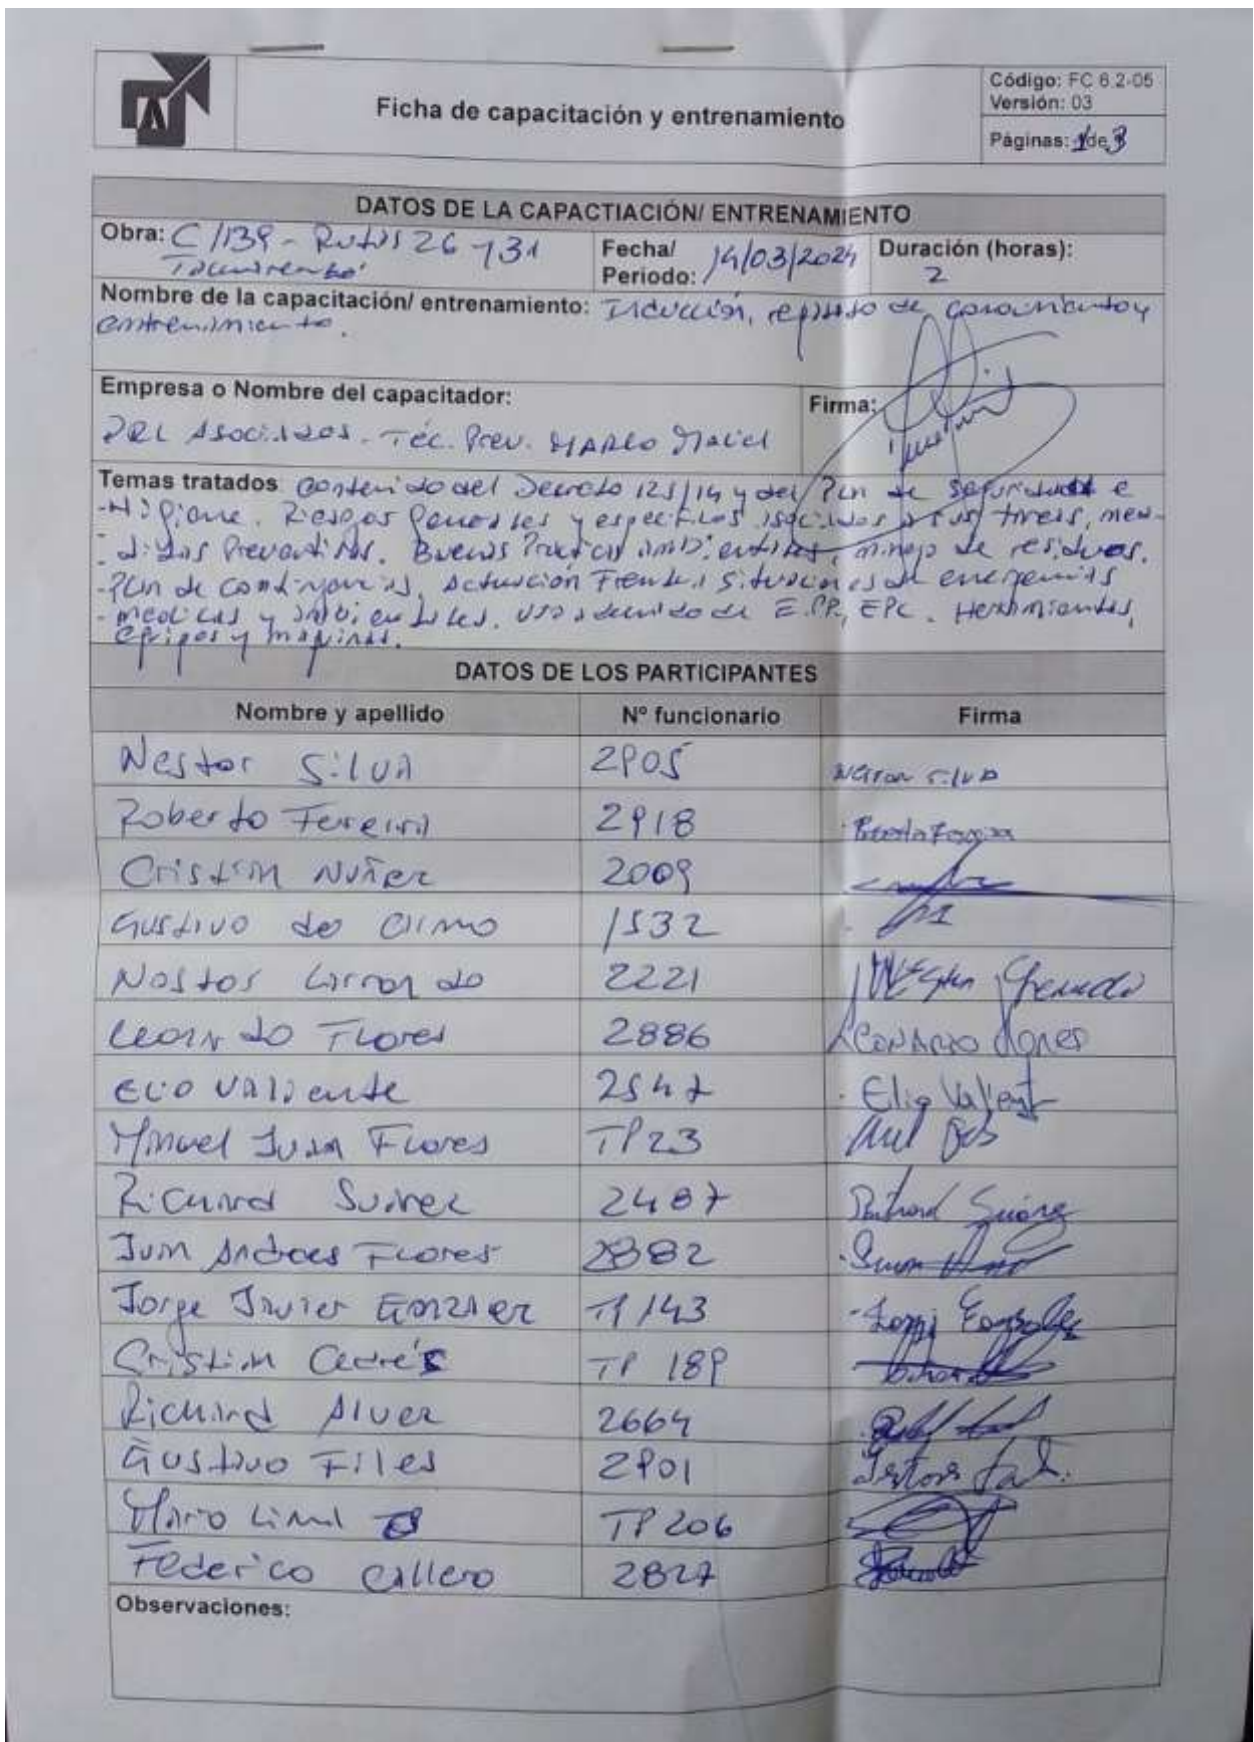 Ficha de capacitación y entrenamiento
Código: FC 6.2-05
Versión: 03
Páginas: 1 de 3
DATOS DE LA CAPACTIACIÓN/ ENTRENAMIENTO
Obra: C/139 - Rutas 26 y 31
Tacuarembó
Fecha/ Periodo: 14/03/2024
Duración (horas):
2
Nombre de la capacitación/ entrenamiento: Inducción, repaso de conocimiento y
entrenamiento.
Empresa o Nombre del capacitador:
Asociados. Téc. Prev. Marco Maciel
Firma:
Temas tratados Contenido del Decreto 125/14 y del Plan de seguridad e
-Higiene. Riesgos generales y específicos asociados a sus tareas, me-
-didas Preventivas. Buenas Practicas ambientales, manejo de residuos.
-Plan de contingencias, Actuación Frente a situaciones de emergencias
-medicas y ambientales. Uso adecuado de E.PP, EPC. Herramientas,
equipos y maquinas.
DATOS DE LOS PARTICIPANTES
Nombre y apellido Nº funcionario Firma
Nestor Silva 2905 Nestor Silva
Roberto Fereira 2918
Cristian Nuñez 2009
Gustavo de 1532
Nestor 2221
Leonardo Flores 2886 Leonardo flores
Elio Valiente 2547 Elio Valient
Manuel Juan Flores TP23
Richard Suarez 2487 Richard Suárez
Juan Andres Flores 2882
Jorge Javier Gonzalez TP 143
Cristian Cedrés TP 189
Richard Alvez 2664
Gustavo Files 2901
Mario Lima TP 206
Federico Callero 2827
Observaciones: